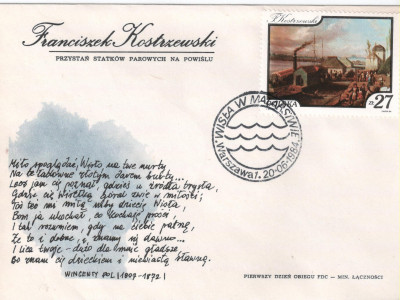 Franciszek Kostrzewski
PRZYSTAŃ STATKÓW PAROWYCH NA POWIŚLU
F. Kostrzewski
POLSKA
zł 27
WISŁA W MALARSTWIE
Warszawa 1. 20-06-1984
Miło spoglądać, Wisło na twe nurty
Na te ładowne złotym darem burty...
Lecz jam cię poznał, gdzieś u źródła bystra,
Gdzie cię Wisełką góral zwie w miłości;
Toś też mi miłą niby dziecię Wisła
Bom ja ukochał, co kochają prości
I tak rozumiem, gdy na ciebie patrzę,
Że to i dobrze, że znamy się dawno...
I lica twoje - dużo dla mnie gładsze,
Bo znam cię dzieckiem i niewiastą sławną.
WINCENTY POL (1807-1872)
PIERWSZY DZIEŃ OBIEGU FDC — MIN. ŁĄCZNOŚCI